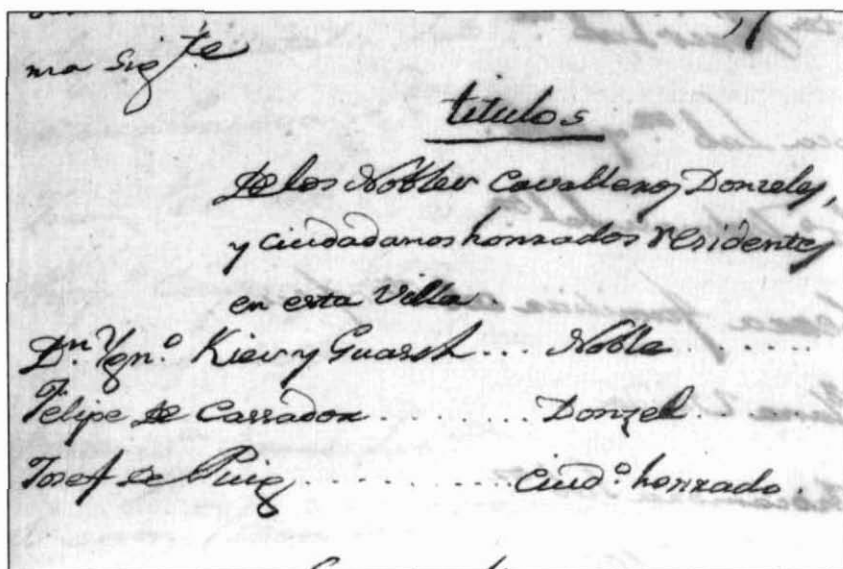 ma Sigte
titulos
de los Nobles Cavalleros Donzeles,
y ciudadanos honrados residentes
en esta Villa.
Dn. Ygno. y Guasch... Noble.......
Felipe de Cassador.......... Donzel....
Josef de Puig........... Ciudo. honrado.